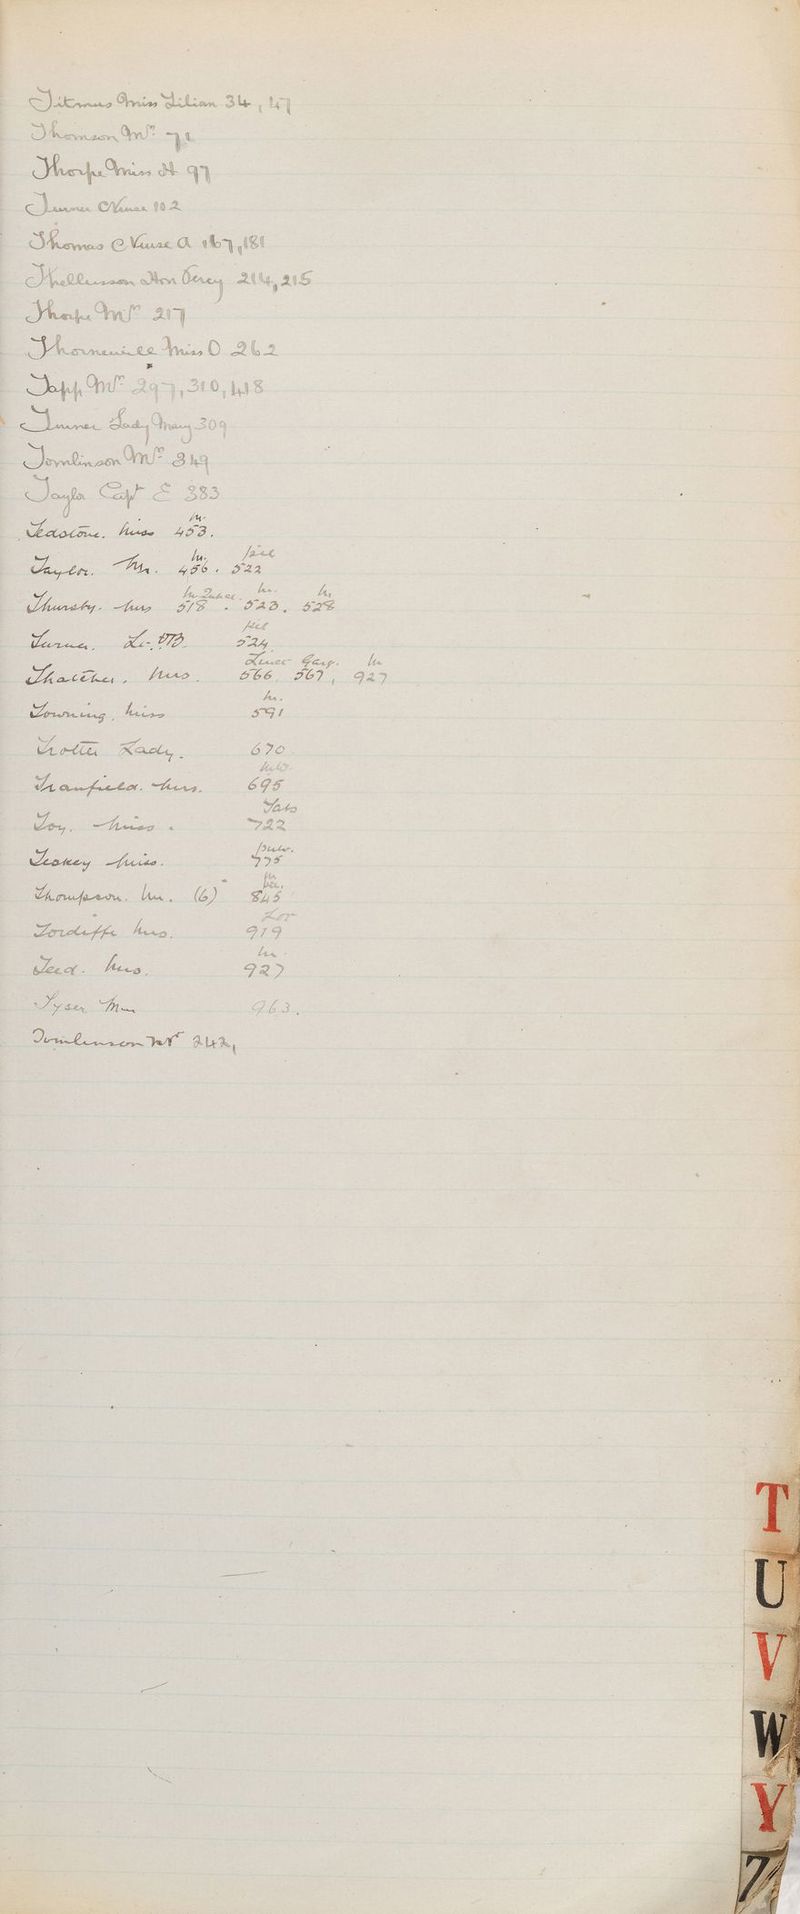 Titmus Miss Lilian 34, 47
Thomson Mrs 71
Thorpe Miss H 97
Turner C Nurse 102
Thomas C Nurse A 167, 181
Thellusson Hon Percy 214, 215
Thorpe Mrs 217
Miss O 262
Tapp Mrs 297, 310, 418
Turner Lady Mary 309
Tomlinson Mrs 349
Taylor Capt E 383
Tedstone. Miss 453.
Taylor. Mr. 456. 522
Thursby. Mrs 518. 523. 528
Turner. Lt. 524
Thatcher. Mrs. 566, 567, 927
Towning. Miss 591
Trotter Lady. 670
Tranfield. Mrs. 695
Toy. Miss. 722
Miss. 775
Thompson. Mr. (6) 845
Tordiffe Mrs. 919
Teed. Mrs. 927
Tyser 963.
Tomlinson Mr 242,
T
U
V
W
Y
Z